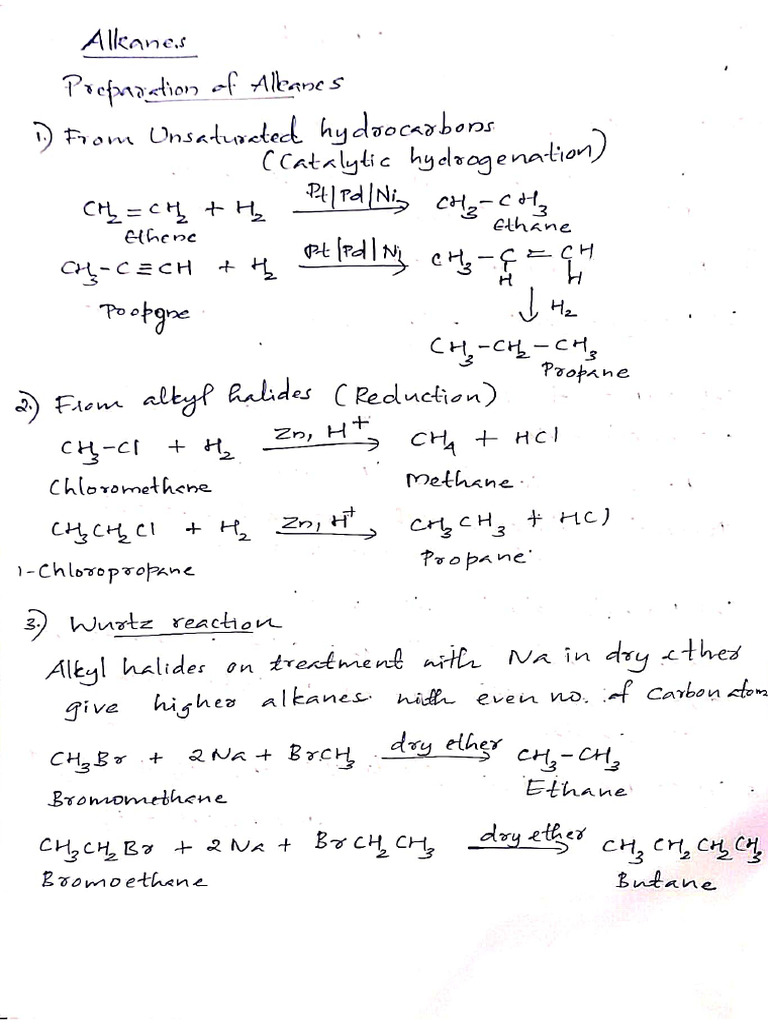 Alkanes
Preparation of Alkanes
1.) From Unsaturated hydrocarbons
(Catalytic hydrogenation)
CH₂=CH₂ + H₂ —Pt|Pd|Ni→ CH₃-CH₃
Ethene Ethane
CH₃-C≡CH + H₂ —Pt|Pd|Ni→ CH₃-C=CH
H H
Propyne ↓ H₂
CH₃-CH₂-CH₃
Propane
2.) From alkyl halides (Reduction)
CH₃-Cl + H₂ —Zn, H⁺→ CH₄ + HCl
Chloromethane Methane.
CH₃CH₂Cl + H₂ —Zn, H⁺→ CH₃CH₃ + HCl
1-Chloropropane Propane.
3.) Wurtz reaction
Alkyl halides on treatment with Na in dry ether
give higher alkanes with even no. of Carbon atom
CH₃Br + 2Na + BrCH₃ —dry ether→ CH₃-CH₃
Bromomethane Ethane
CH₃CH₂Br + 2Na + BrCH₂CH₃ —dry ether→ CH₃CH₂CH₂CH₃
Bromoethane Butane